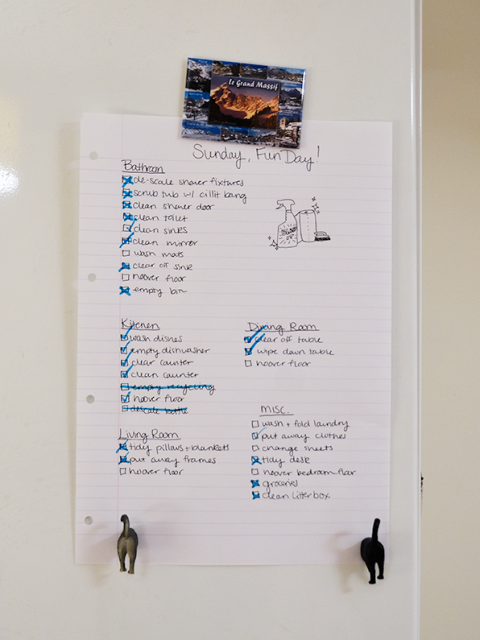 Le Grand Massif
Sunday, Fun Day!
Bathroom
de-scale shower fixtures
scrub tub w/ cillit bang
clean shower door
clean toilet
clean sinks
clean mirror
wash mats
clear off sink
hoover floor
empty bin
Kitchen
wash dishes
empty dishwasher
clear counter
clean counter
empty recycling
hoover floor
descale kettle
Living Room
tidy pillows + blankets
put away frames
hoover floor
Dining Room
clear off table
wipe down table
hoover floor
misc.
wash + fold laundry
put away clothes
change sheets
tidy desk
hoover bedroom floor
groceries
clean litterbox